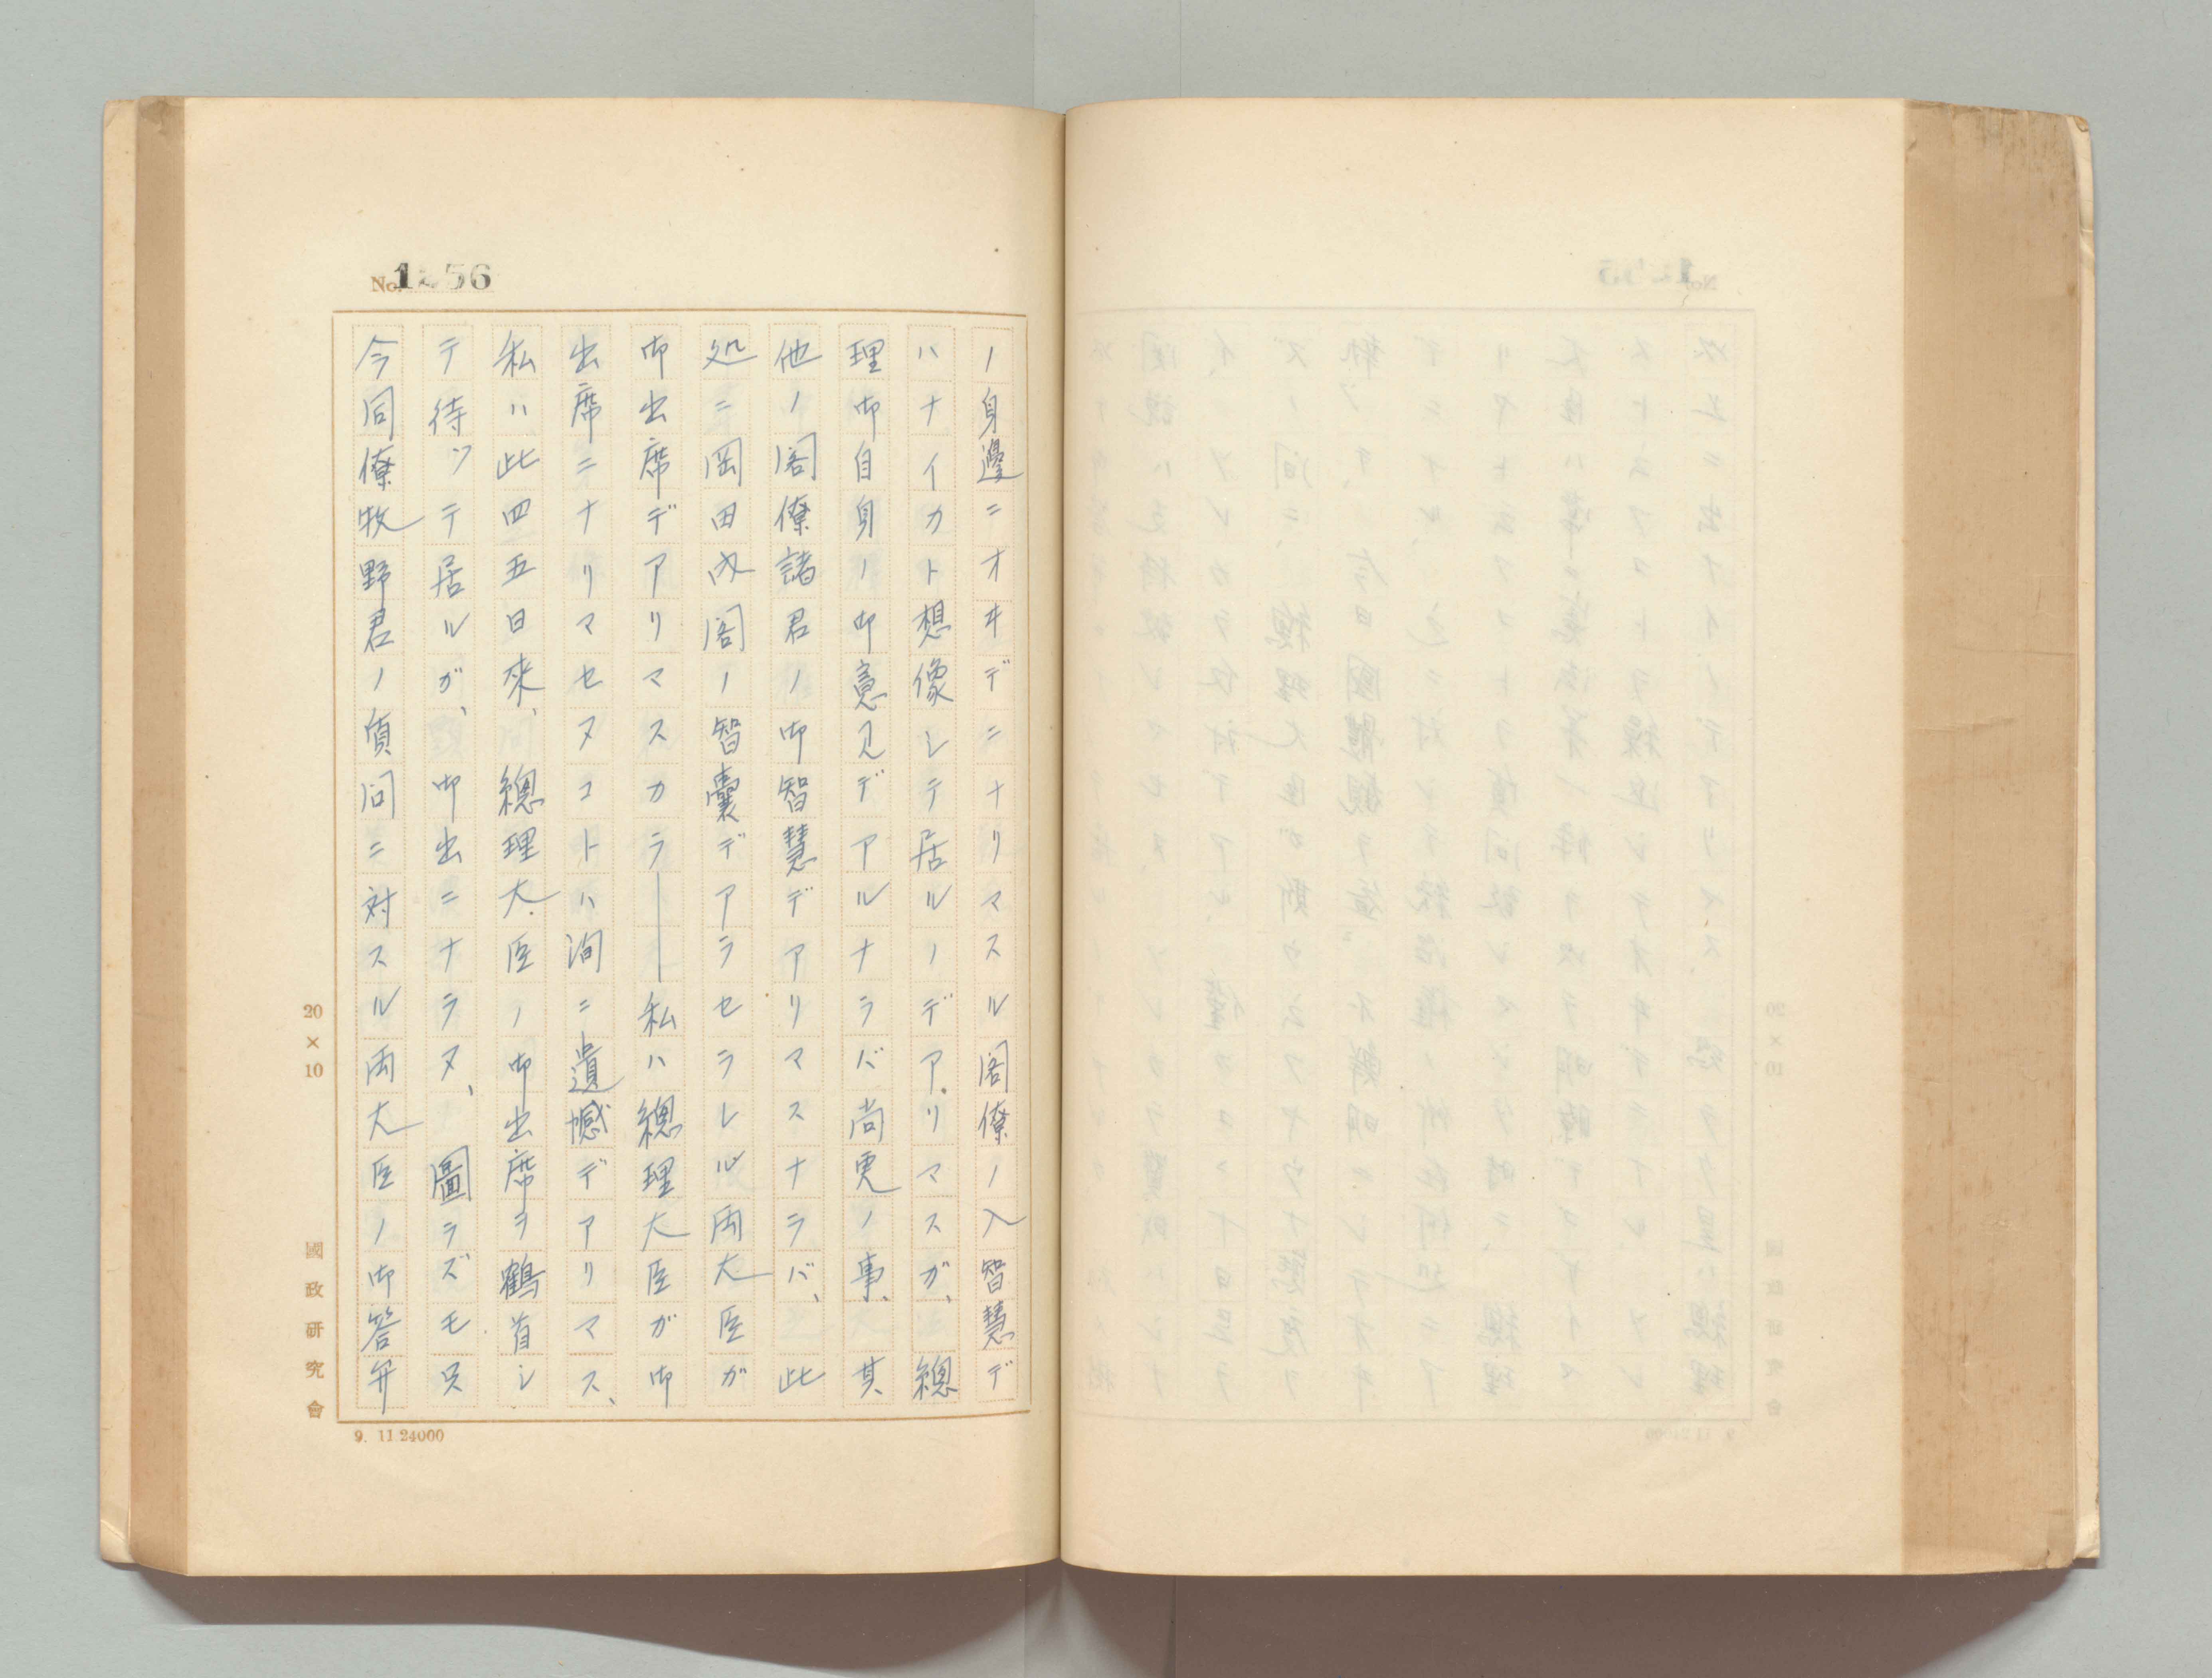 No. 1256
ノ身邊ニオヰデニナリマスル閣僚ノ入智慧デ
ハナイカト想像シテ居ルノデアリマスガ、總
理御自身ノ御意見デアルナラバ尚更ノ事、其
他ノ閣僚諸君ノ御智慧デアリマスナラバ、此
処ニ岡田内閣ノ智囊デアラセラレル両大臣ガ
御出席デアリマスカラ――私ハ總理大臣ガ御
出席ニナリマセヌコトハ洵ニ遺憾デアリマス、
私ハ此四五日来、總理大臣ノ御出席ヲ鶴首シ
テ待ツテ居ルガ、御出ニナラヌ、圖ラズモ只
今同僚牧野君ノ質问ニ対スル両大臣ノ御答弁
20×10
國政研究會
9. 11 24000